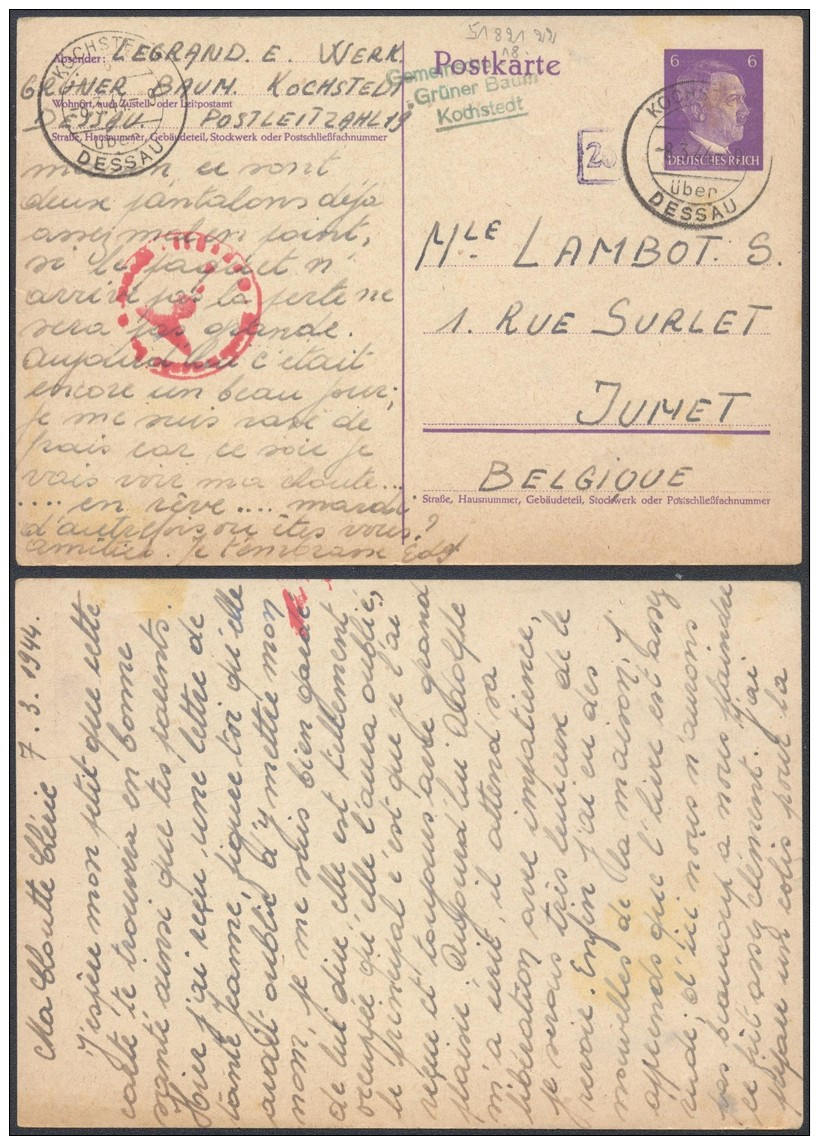 51821
18
Postkarte
Gemeinde
Grüner Baum
Kochstedt
Absender: LEGRAND. E. WERK.
GRÜNER BAUM. KOCHSTEDT
Wohnort, auch Zustell- oder Leitpostamt
DESSAU. POSTLEITZAHL 19
Straße, Hausnummer, Gebäudeteil, Stockwerk oder Postschließfachnummer
KOCHSTE
über
DESSAU
6 6
DEUTSCHES REICH
KOCHS
über
DESSAU
MLE LAMBOT. S.
1. RUE SURLET
JUMET
BELGIQUE
Straße, Hausnummer, Gebäudeteil, Stockwerk oder Postschließfachnummer
ce sont
deux pantalons déjà
assez mal en point,
si le paquet n'
arrive pas la perte ne
sera pas grande.
Aujourd'hui c'était
encore un beau jour;
je me suis rasé de
frais car ce soir je
vais voir ma choute...
.... en rêve .... mardi
d'autrefois ou êtes vous?
amitiés. Je t'embrasse Edg
Ma Choutte Chérie 7.3.1944.
J'espère mon petit que cette
carte te trouvera en bonne
santé ainsi que tes parents.
Hier j'ai reçu une lettre de
tante Jeanne, figure toi qu'elle
avait oublié d'y mettre mon
nom, je me suis bien gardé
de lui dire, elle est tellement
occupée qu'elle l'aura oublié,
le principal c'est que je l'ai
reçue et toujours avec grand
plaisir. Aujourd'hui Adolphe
m'a écrit, il attend sa
libération avec impatience,
je serais très heureux de le
revoir. Enfin j'ai eu des
nouvelles de la maison, j'
apprends que l'hiver est assez
rude, d'ici nous n'aurons
pas beaucoup a nous plaindre
ce fut assez clément. J'ai
préparé un colis pour la